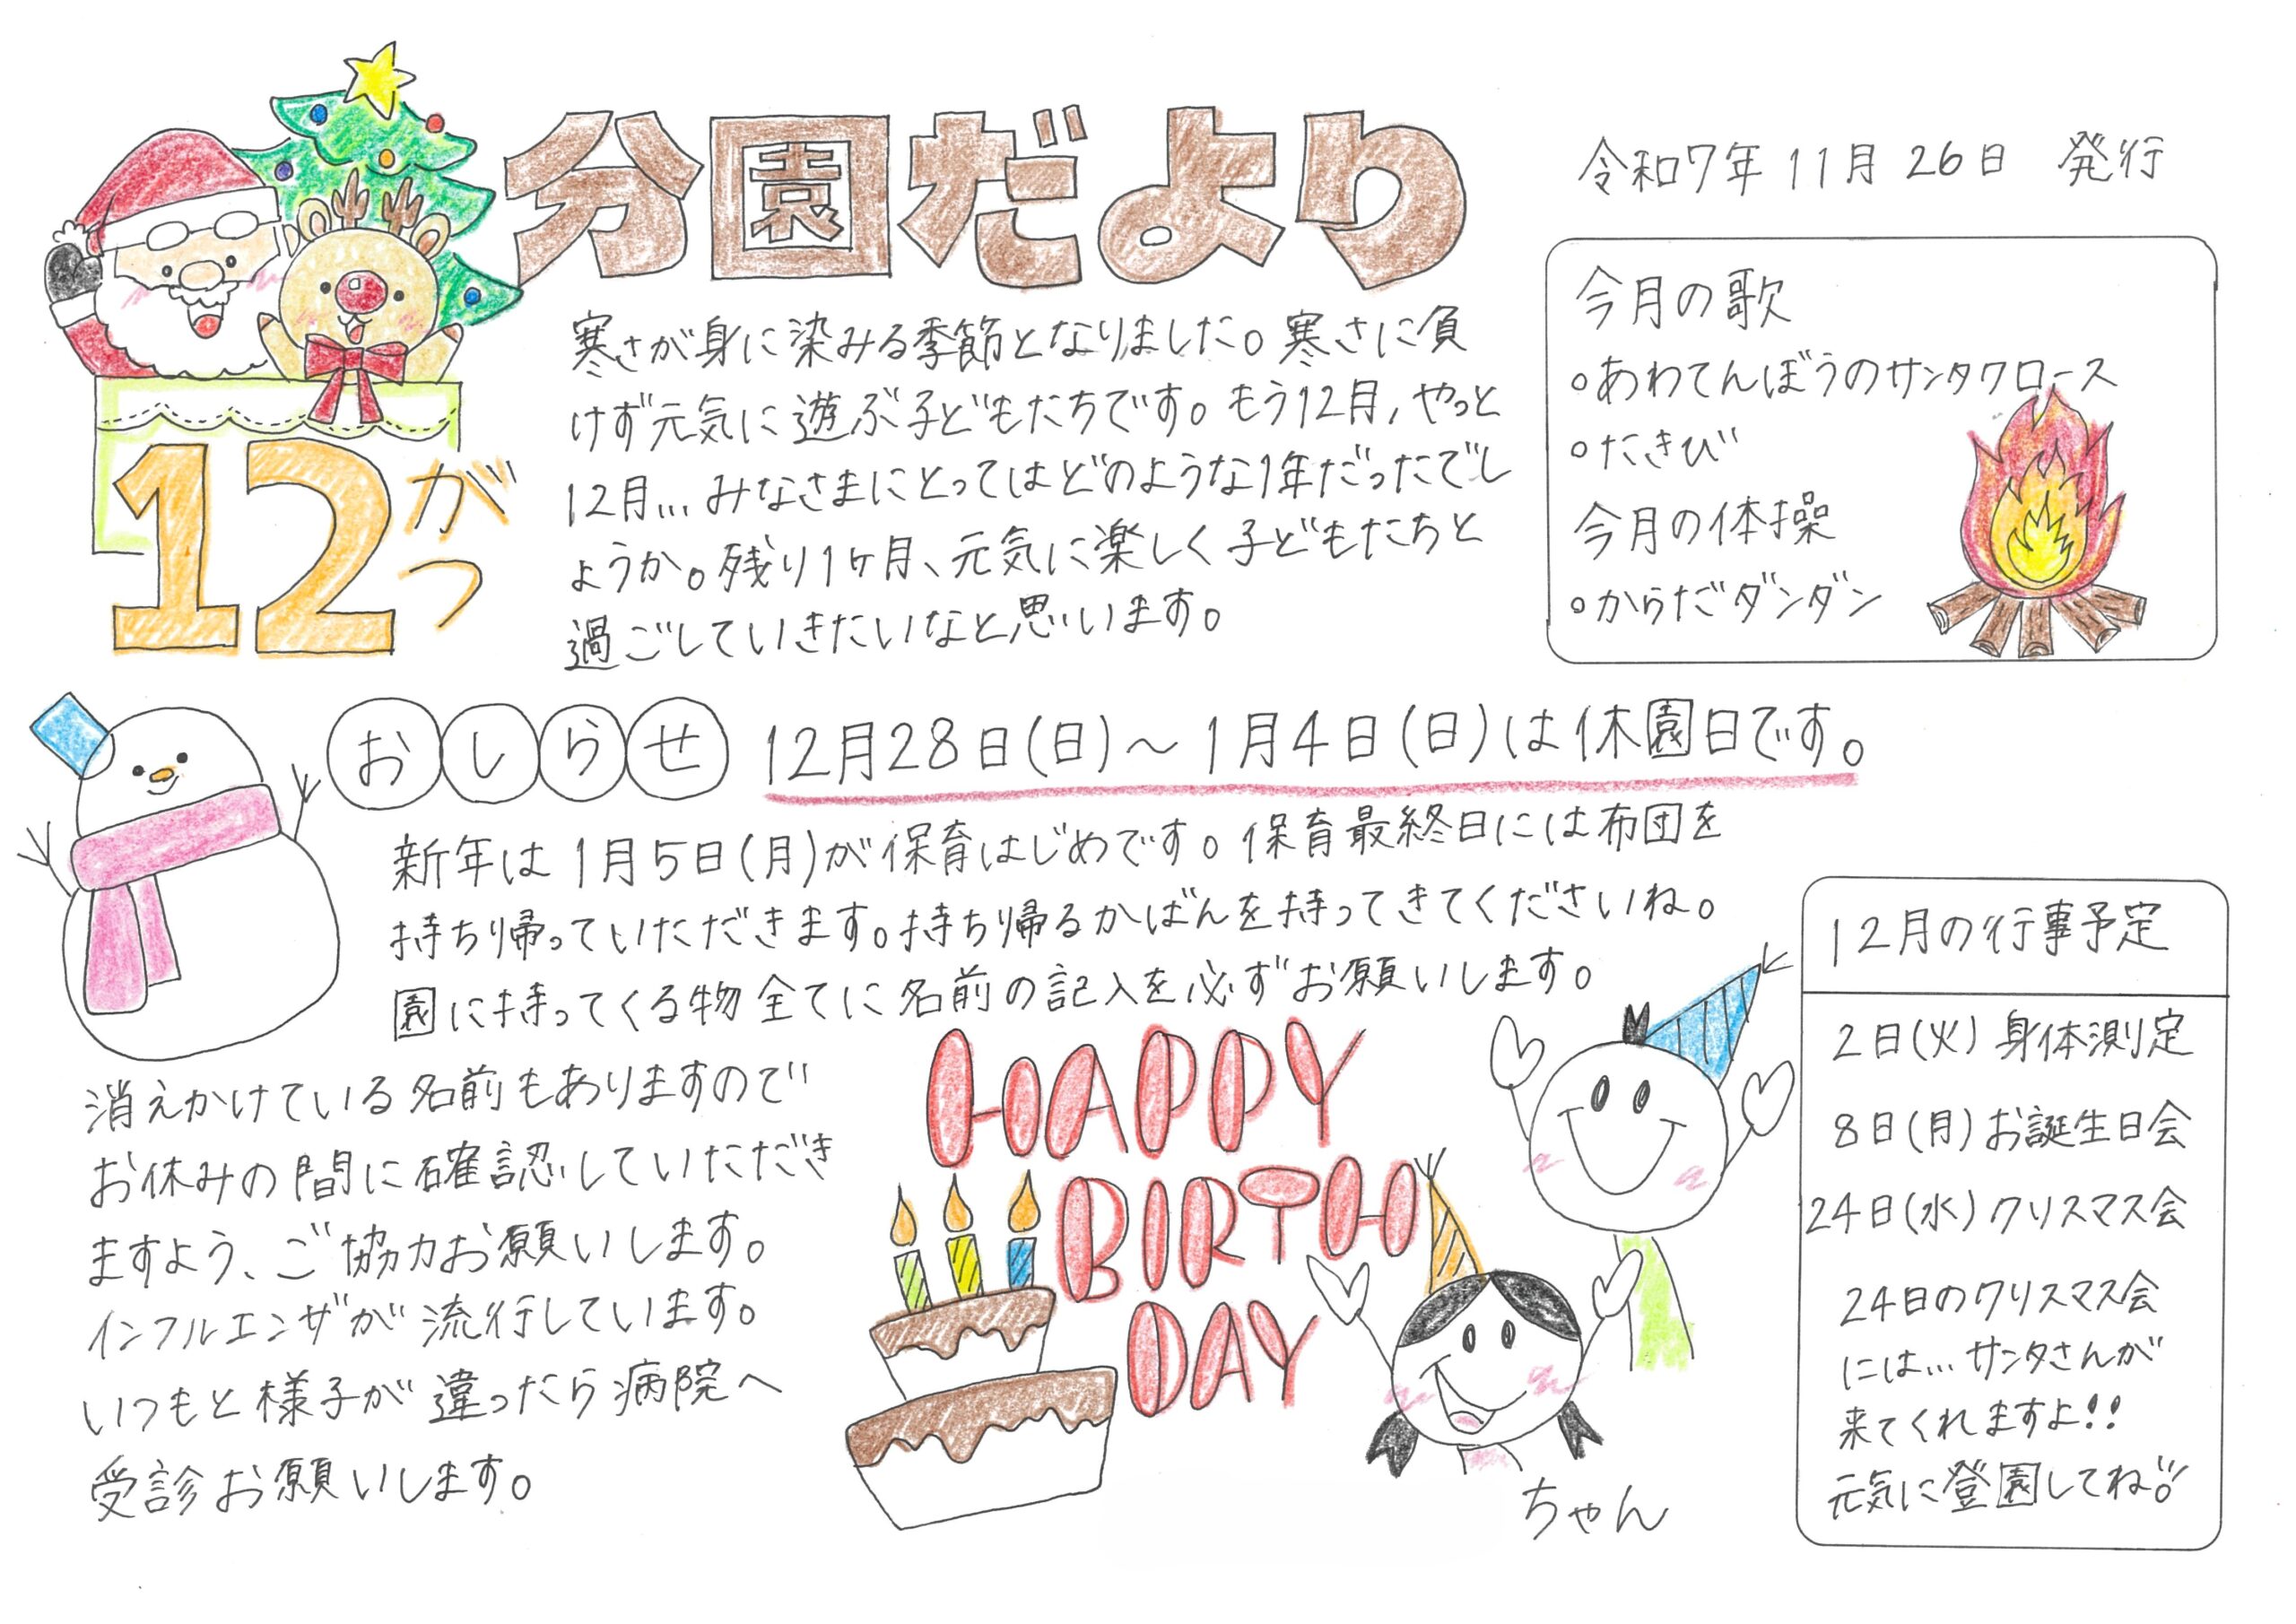 分園だより
12がつ
令和7年 11月 26日 発行
寒さが身に染みる季節となりました。寒さに負
けず元気に遊ぶ子どもたちです。もう12月,やっと
12月...みなさまにとってはどのような1年だったでし
ょうか。残り1ヶ月、元気に楽しく子どもたちと
過ごしていきたいなと思います。
今月の歌
○あわてんぼうのサンタクロース
○たきび
今月の体操
○からだダンダン
おしらせ 12月28日(日)～1月4日(日)は休園日です。
新年は1月5日(月)が保育はじめです。保育最終日には布団を
持ち帰っていただきます。持ち帰るかばんを持ってきてくださいね。
園に持ってくる物全てに名前の記入を必ずお願いします。
消えかけている名前もありますので
お休みの間に確認していただき
ますよう、ご協力お願いします。
インフルエンザが流行しています。
いつもと様子が違ったら病院へ
受診お願いします。
HAPPY
BIRTH
DAY
ちゃん
12月の行事予定
2日(火)身体測定
8日(月)お誕生日会
24日(水)クリスマス会
24日のクリスマス会
には...サンタさんが
来てくれますよ!!
元気に登園してね!!